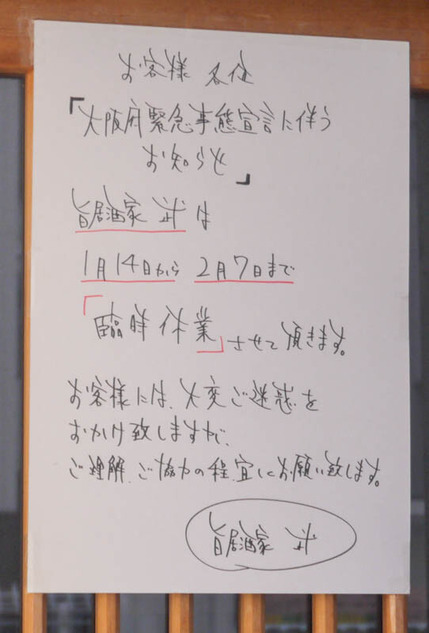 お客様 各位
「大阪府緊急事態宣言に伴う
お知らせ」
旨居酒家 は
1月14日から 2月7日まで
「臨時休業」させて頂きます。
お客様には、大変ご迷惑を
おかけ致しますが、
ご理解、ご協力の程宜しくお願い致します。
旨居酒家